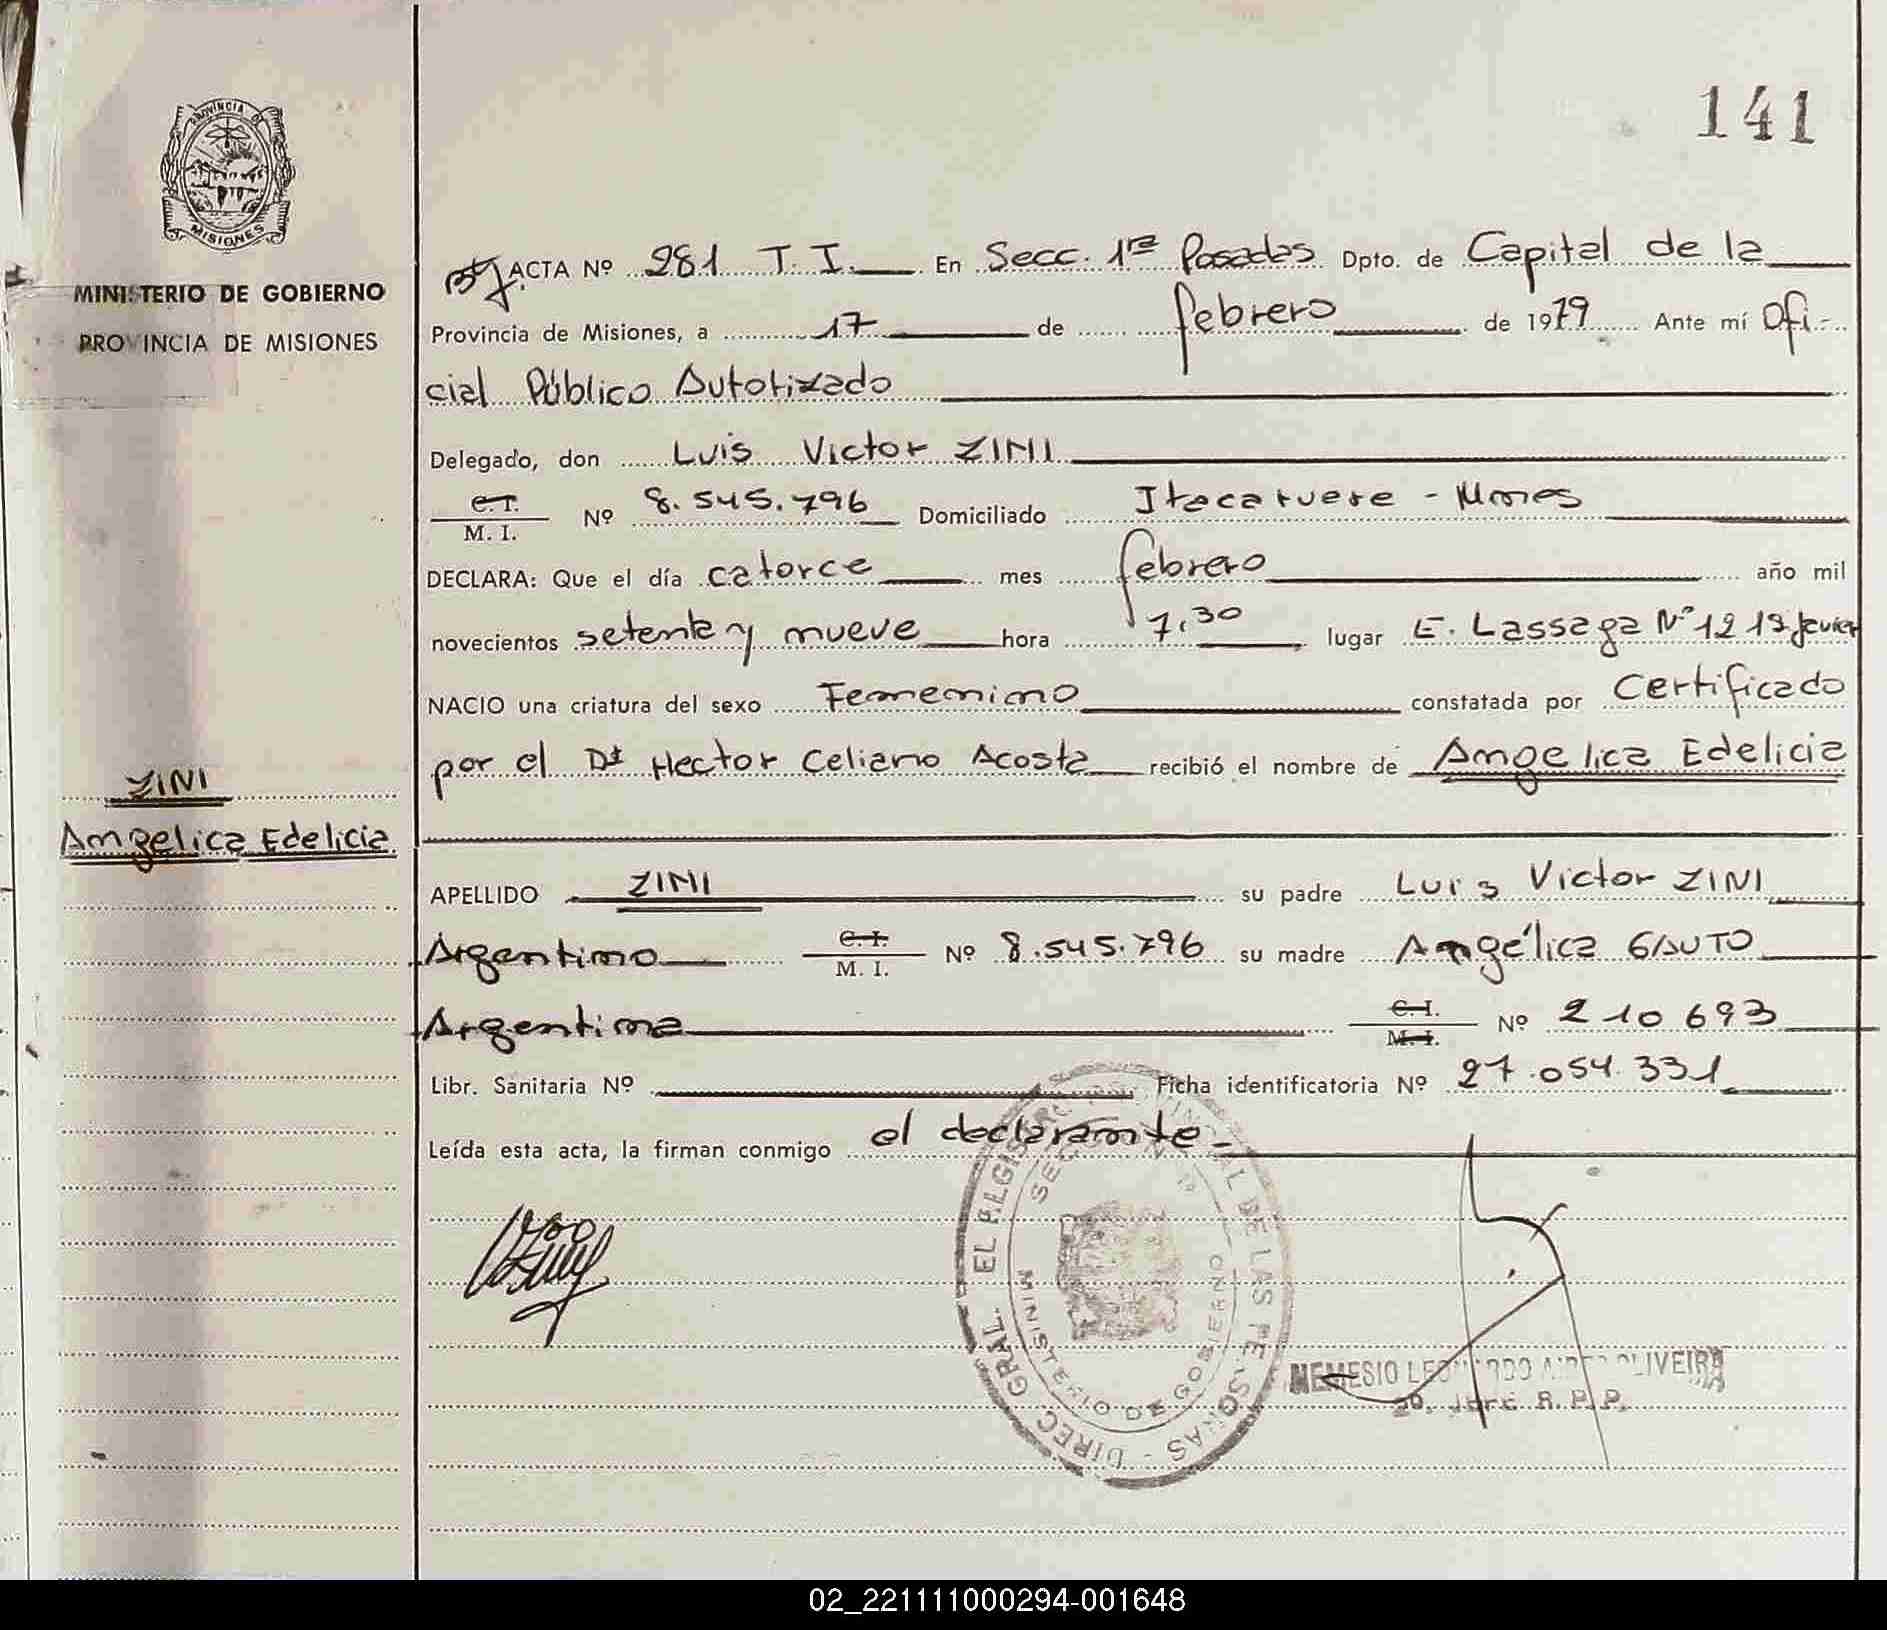 141
PROVINCIA D
MISIONES
MINISTERIO DE GOBIERNO
PROVINCIA DE MISIONES
ACTA Nº 281 T. I. En Secc. 1ra Posadas Dpto. de Capital de la
Provincia de Misiones, a 17 de febrero de 1979 Ante mí Ofi-
cial Público Autorizado
Delegado, don Luis Victor ZINI
C. I.
M. I. Nº 8.545.796 Domiciliado Itacaruere - Mnes
DECLARA: Que el día catorce mes febrero año mil
novecientos setenta y nueve hora 7,30 lugar E. Lassaga Nº 12 1
NACIO una criatura del sexo Femenino constatada por Certificado
por el Dr Hector Celiano Acosta recibió el nombre de Angelica Edelicia
ZINI
Angelica Edelicia
APELLIDO ZINI su padre Luis Victor ZINI
Argentino C. I. M. I. Nº 8.545.796 su madre Angélica GAUTO
Argentina C. I. M. I. Nº 210693
Libr. Sanitaria Nº Ficha identificatoria Nº 27.054.331
Leída esta acta, la firman conmigo el declarante.-
DIREC. GRAL. EL REGISTRO PROVINCIAL DE LAS PERSONAS
SECCION 1ª
MINISTERIO DE GOBIERNO
NEMESIO LEONARDO OLIVEIRA
Jefe R. P. P.
02_221111000294-001648